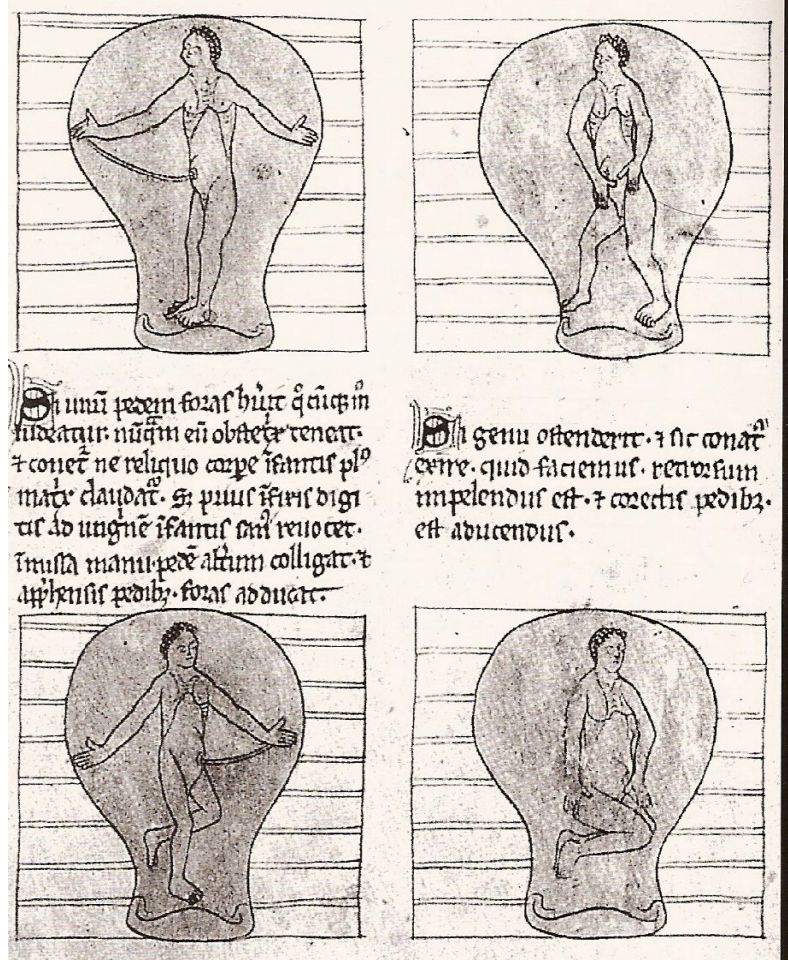 Si unũ pedem foras hũit q̃cũq; in
uideatur. nũq̃m eũ obstetr̃ teneat.
⁊ conet̃ ne reliquo corpe ĩfantis
matr̃ claudat̃. S; prius ĩfĩris digi
tis ad ungnẽ ĩfantis reuocet.
ĩmissa manu. pedẽ alt̃um colligat. ⁊
app̃hensis pedib; foras adducat.
Si genu ostenderit. ⁊ sic conat̃
exire. quid faciemus. retrorsum
impelendus est. ⁊ corectis pedib;.
est aducendus.